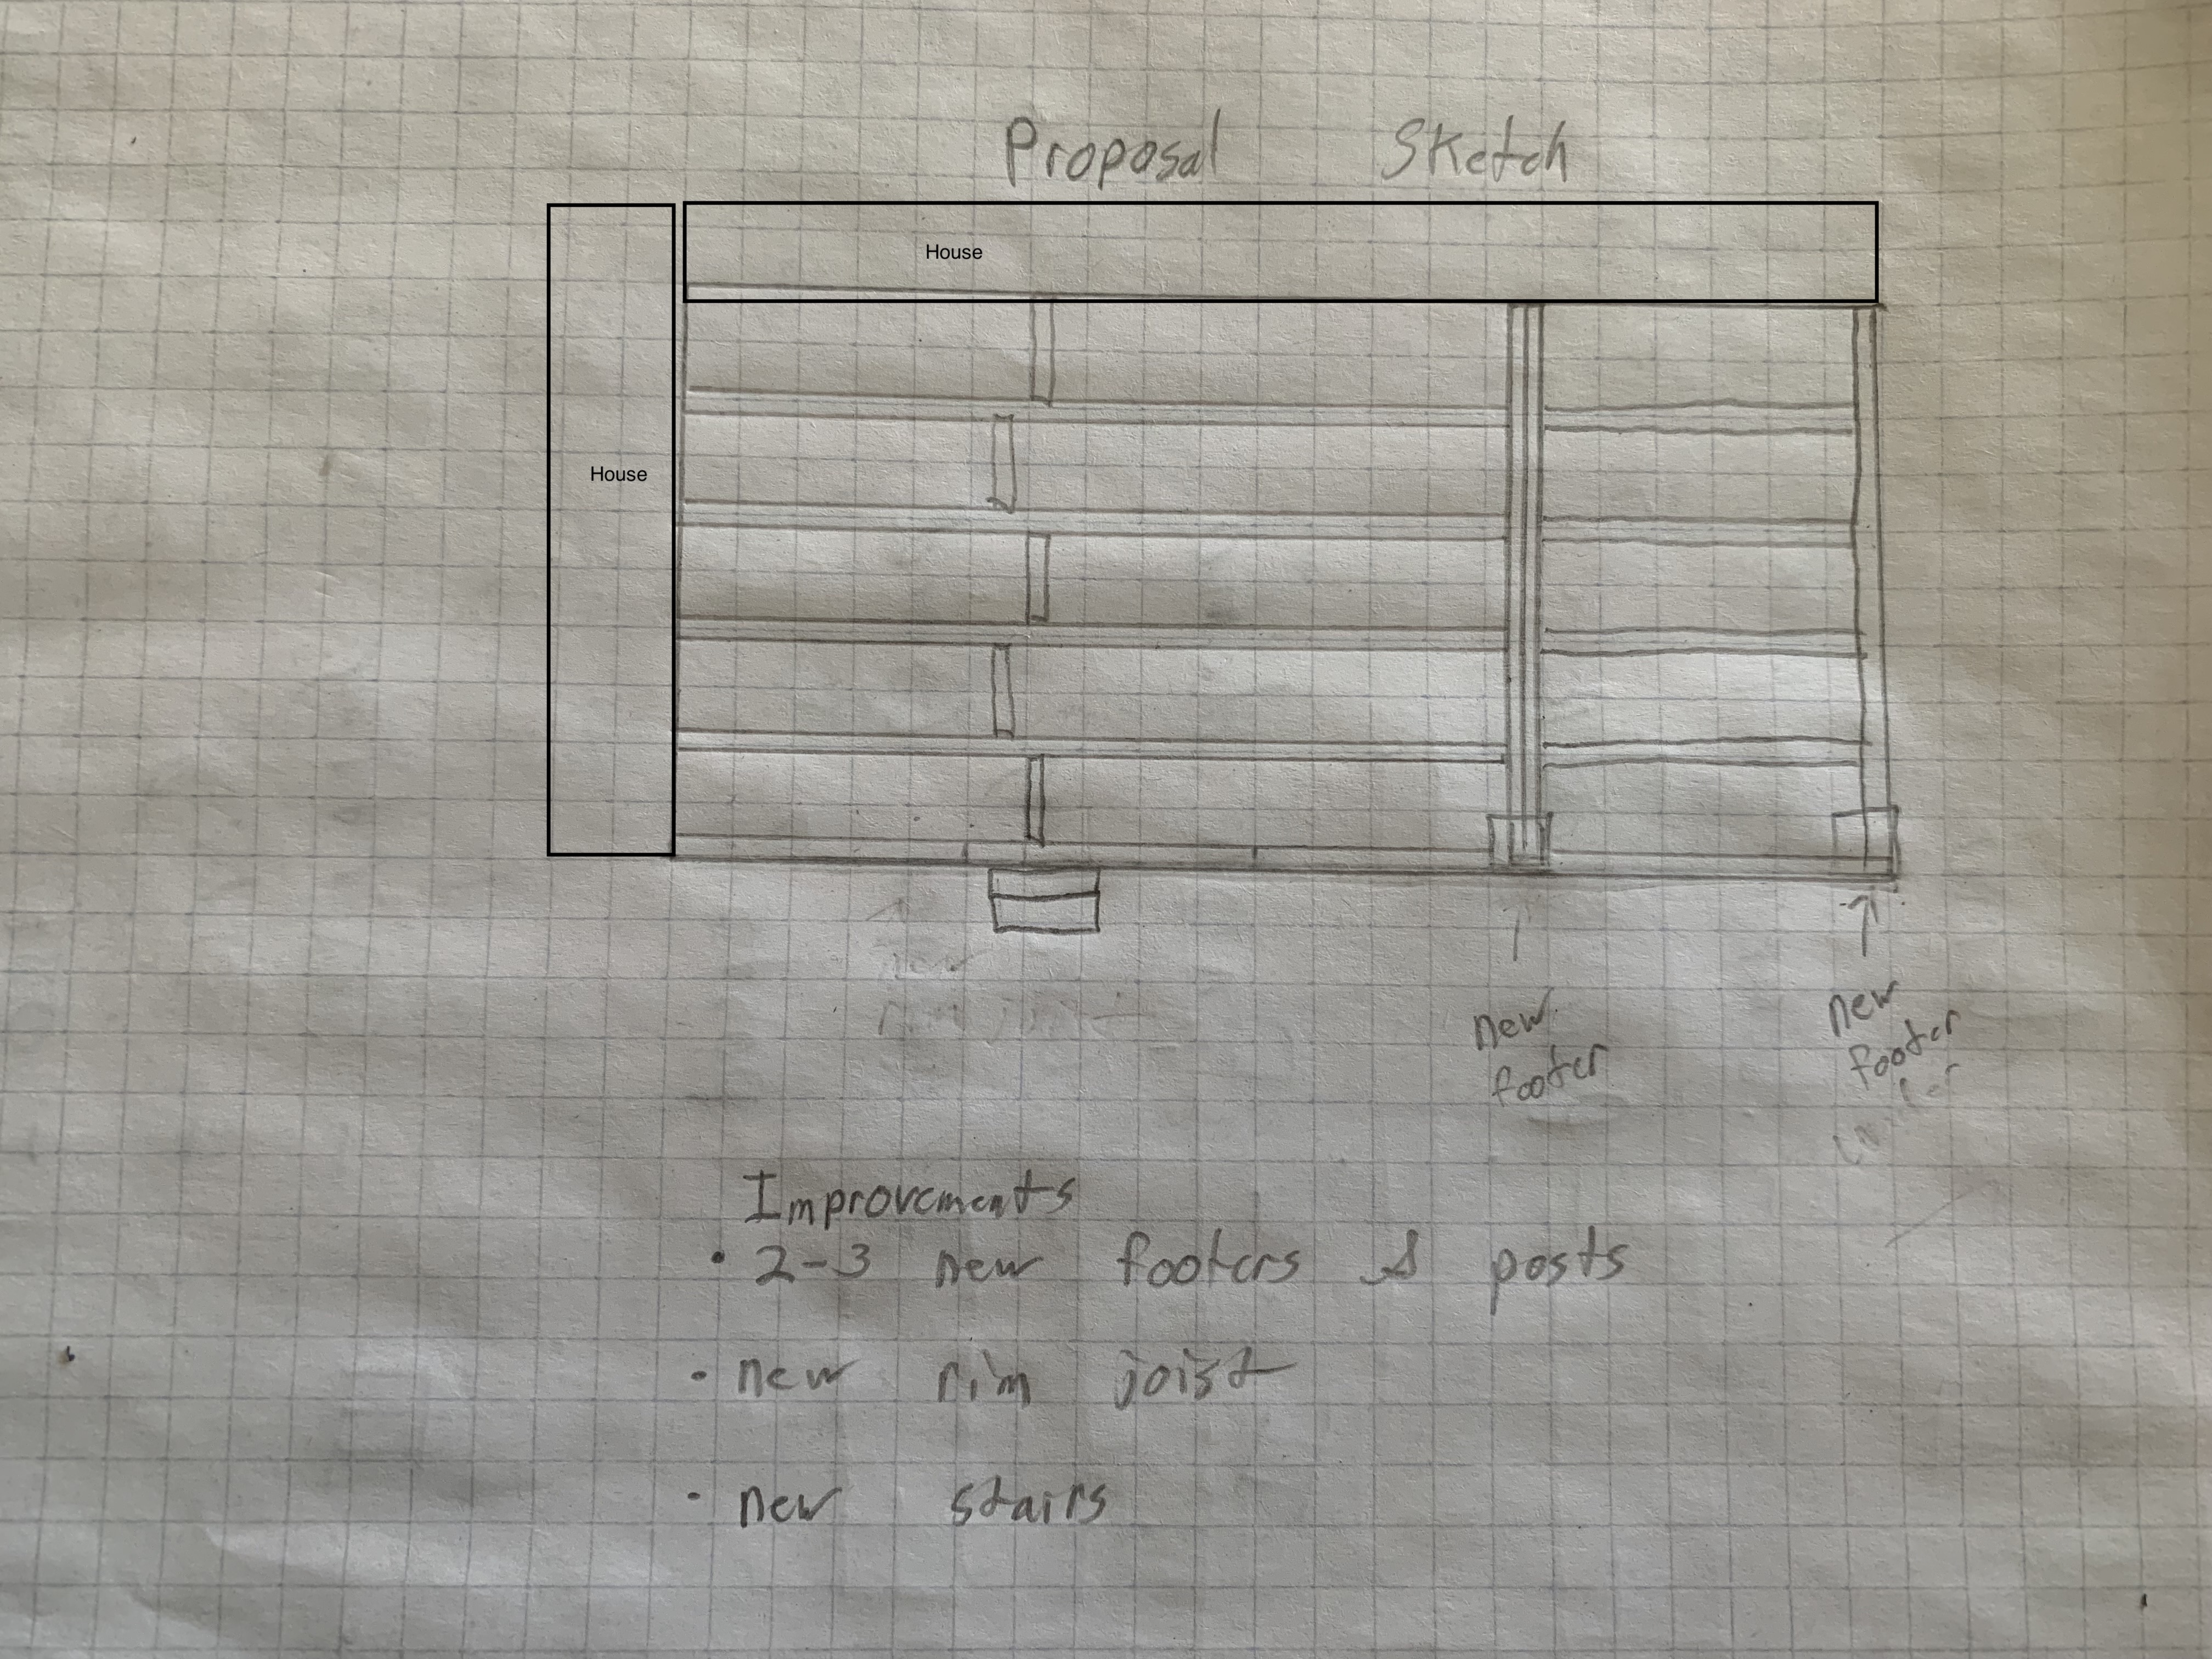 Proposal Sketch
House
House
new
rim joist
new
footer
new
footer
Improvements
• 2-3 new footers & posts
• new rim joist
• new stairs